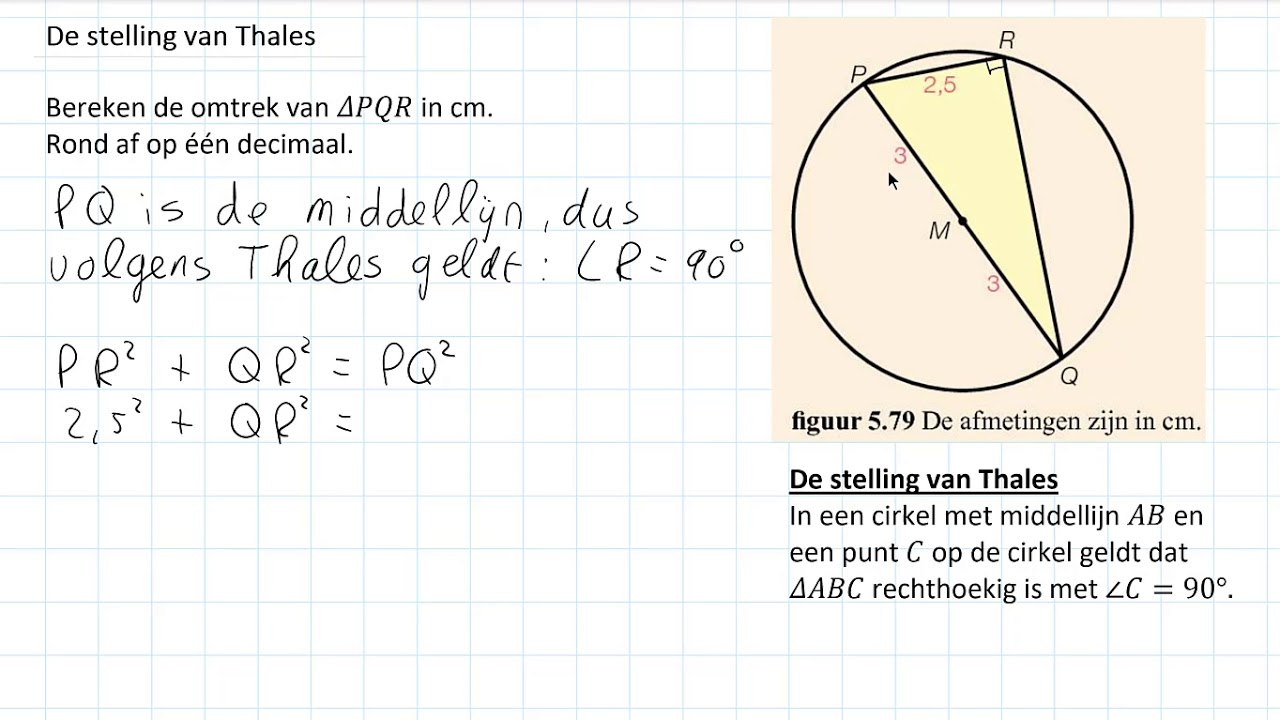 De stelling van Thales
Bereken de omtrek van ΔPQR in cm.
Rond af op één decimaal.
PQ is de middellijn, dus
volgens Thales geldt: ∠R = 90°
PR² + QR² = PQ²
2,5² + QR² =
R
P
2,5
3
M
3
Q
figuur 5.79 De afmetingen zijn in cm.
De stelling van Thales
In een cirkel met middellijn AB en
een punt C op de cirkel geldt dat
ΔABC rechthoekig is met ∠C = 90°.